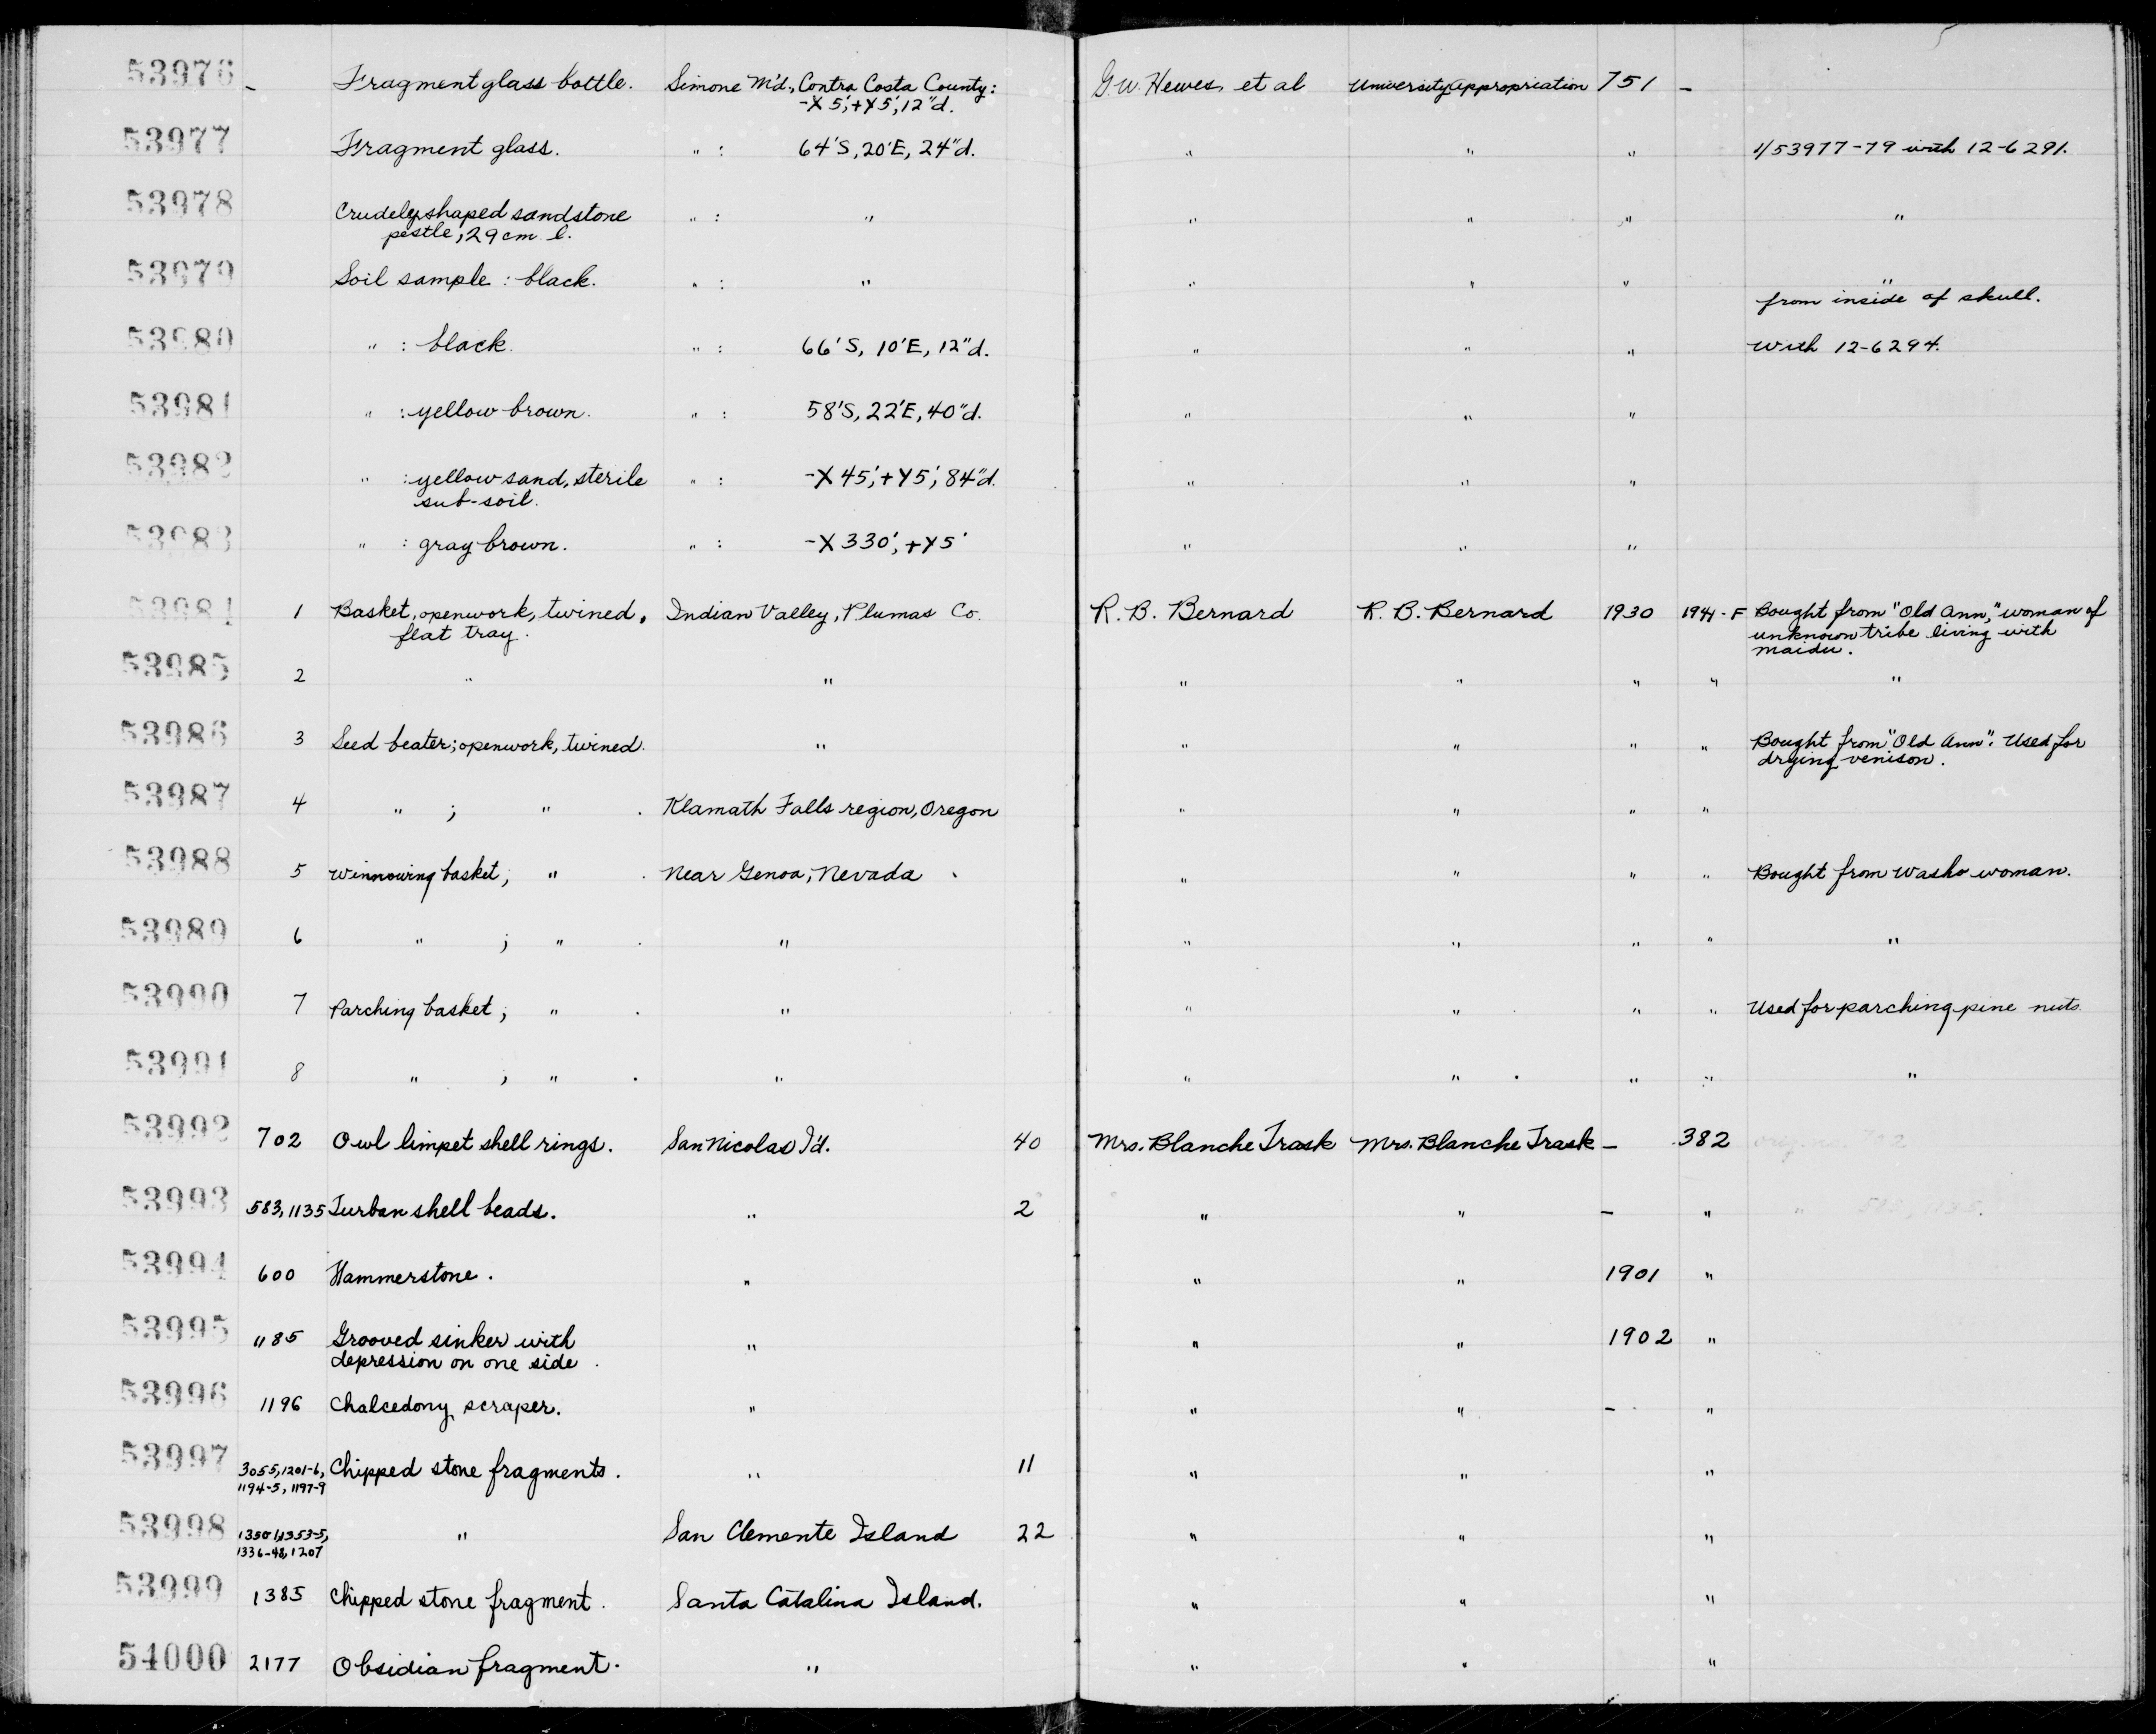 53976 - Fragment glass bottle. Simone M'd., Contra Costa County: G.W. Hewes et al University Appropriation 751 -
-X5', +Y5', 12"d.
53977 Fragment glass. " : 64'S, 20'E, 24"d. " " " 1/53977-79 with 12-6291.
53978 Crudely shaped sandstone " : " " " " "
pestle, 29cm. l.
53979 Soil sample : black. " : " " " " "
from inside of skull.
53980 " : black. " : 66'S, 10'E, 12"d. " " " With 12-6294.
53981 " : yellow brown. " : 58'S, 22'E, 40"d. " " "
53982 " : yellow sand, sterile " : -X45', +Y5', 84"d. " " "
sub-soil.
53983 " : gray brown. " : -X330', +Y5' " " "
53984 1 Basket, openwork, twined, Indian Valley, Plumas Co. R. B. Bernard R. B. Bernard 1930 1941-F Bought from "Old Ann," woman of
flat tray. unknown tribe living with
Maidu.
53985 2 " " " " " " "
53986 3 Seed beater; openwork, twined. " " " " " Bought from "Old Ann". Used for
drying venison.
53987 4 " ; " . Klamath Falls region, Oregon " " " "
53988 5 Winnowing basket; " . Near Genoa, Nevada " " " " Bought from Washo woman.
53989 6 " ; " . " " " " " "
53990 7 Parching basket; " . " " " " " Used for parching pine nuts
53991 8 " ; " . " " " . " " "
53992 702 Owl limpet shell rings. San Nicolas I'd. 40 Mrs. Blanche Trask Mrs. Blanche Trask - 382
53993 583, 1135 Turban shell beads. " 2 " " - "
53994 600 Hammerstone. " " " 1901 "
53995 1185 Grooved sinker with " " " 1902 "
depression on one side.
53996 1196 Chalcedony scraper. " " " - "
53997 3055, 1201-6, Chipped stone fragments. " 11 " " "
1194-5, 1197-9
53998 " San Clemente Island 22 " " "
1336-48, 1207
53999 1385 Chipped stone fragment. Santa Catalina Island. " " "
54000 2177 Obsidian fragment. " " " "